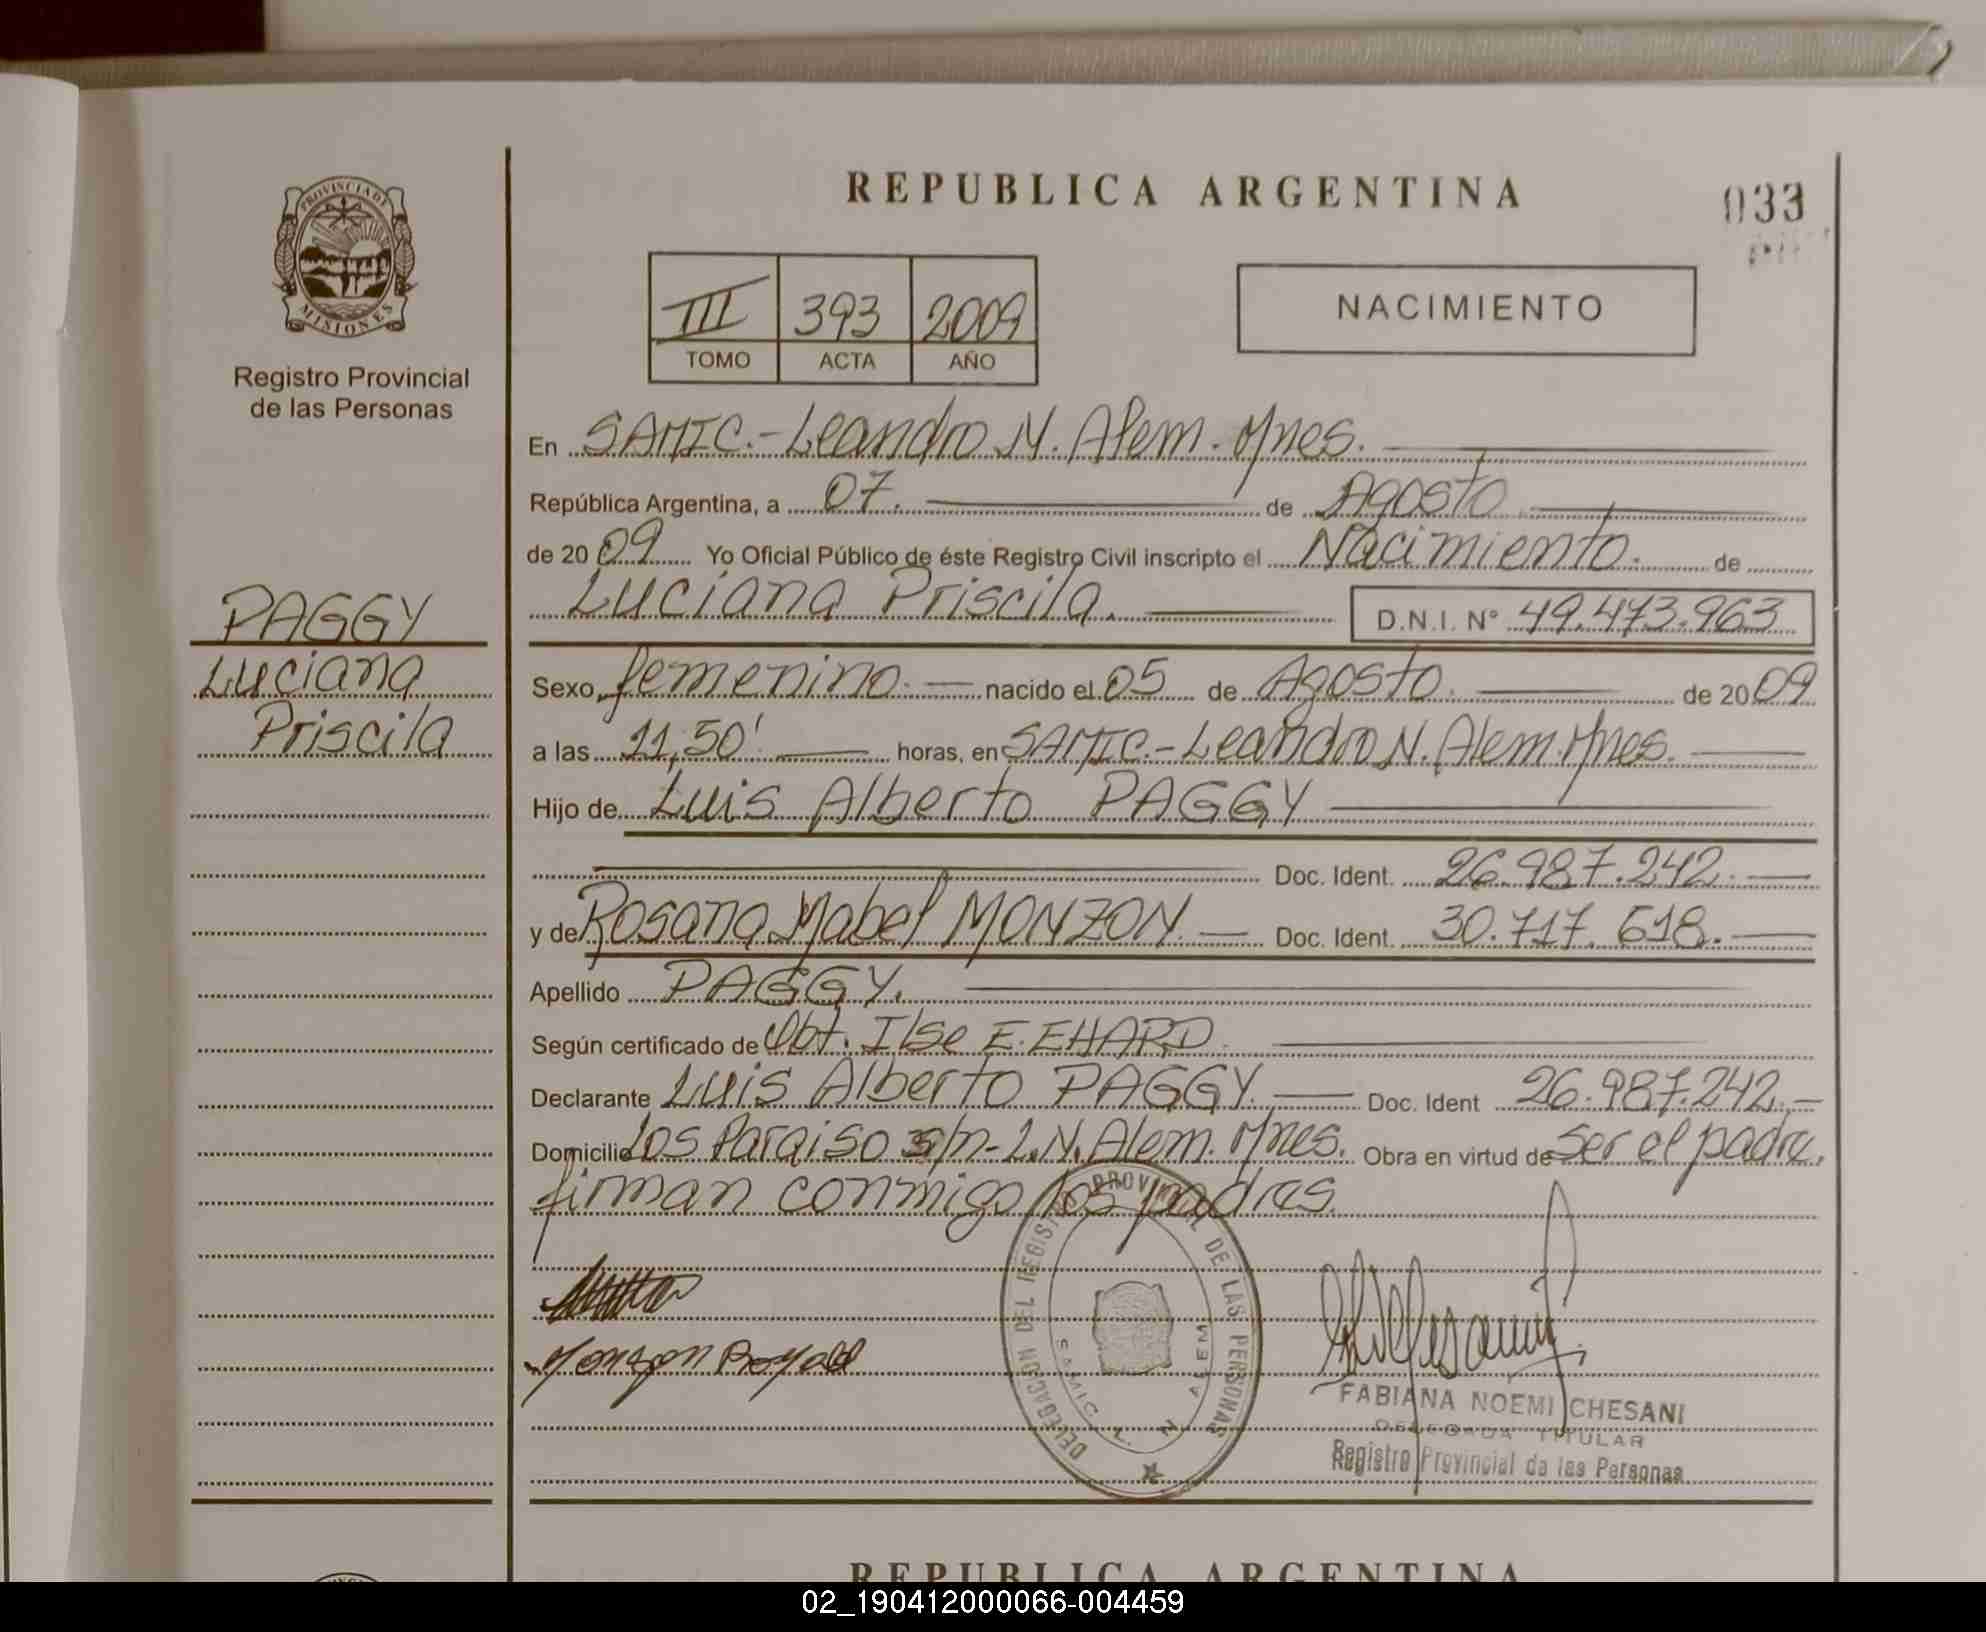 PROVINCIA DE
MISIONES
Registro Provincial
de las Personas
PAGGY
Luciana
Priscila
REPUBLICA ARGENTINA
033
III 393 2009
TOMO ACTA AÑO
NACIMIENTO
En SAMIC.- Leandro N. Alem. Mnes.
República Argentina, a 07. de Agosto
de 2009 Yo Oficial Público de éste Registro Civil inscripto el Nacimiento. de
Luciana Priscila. D.N.I. Nº 49.473.963
Sexo femenino. nacido el 05 de Agosto. de 2009
a las 11,50'. horas, en SAMIC.- Leandro N. Alem. Mnes.
Hijo de Luis Alberto PAGGY
Doc. Ident. 26.987.242.
y de Rosana Mabel MONZON. Doc. Ident. 30.717.618.
Apellido PAGGY.
Según certificado de Obt. Ilse E. EHARD.
Declarante Luis Alberto PAGGY. Doc. Ident 26.987.242.
Domicilio Los Paraiso s/n - L.N. Alem. Mnes. Obra en virtud de ser el padre.
firman conmigo los padres.
DELEGACIÓN DEL REGISTRO PROVINCIAL DE LAS PERSONAS
SAMIC L. N. ALEM
Monzon
FABIANA NOEMI CHESANI
DELEGADA TITULAR
Registro Provincial de las Personas
REPUBLICA ARGENTINA
02_190412000066-004459